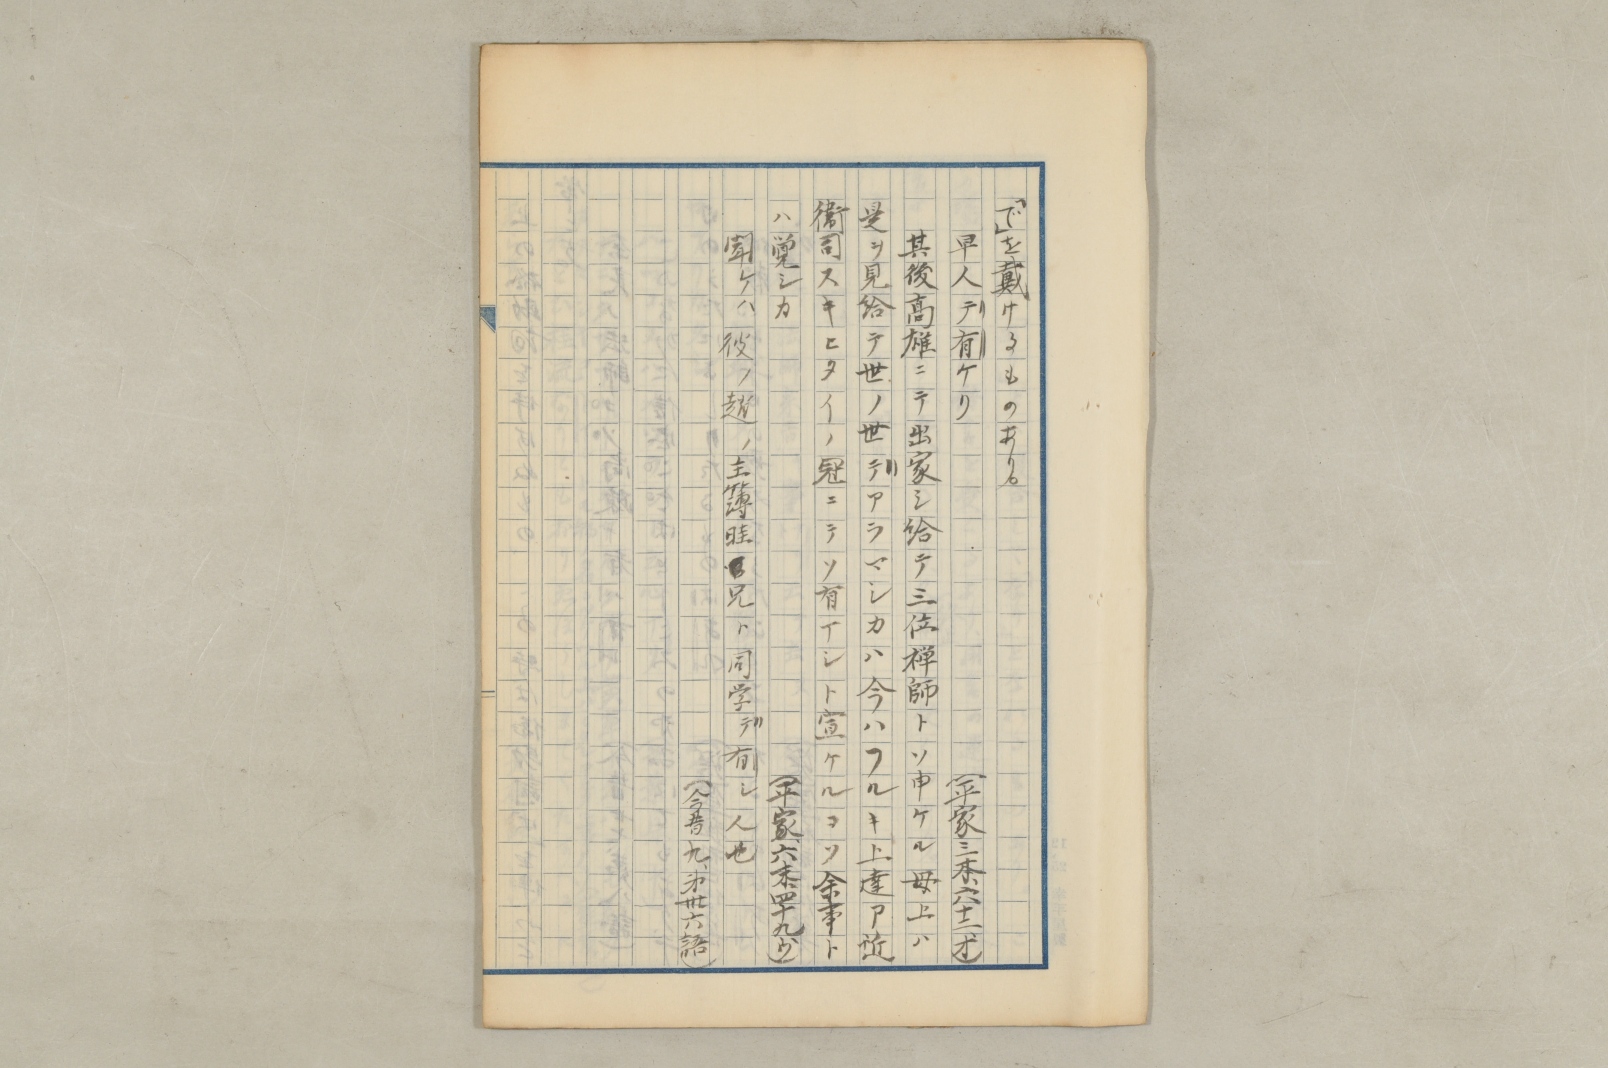 「で」を戴けるものあり。
早人デ有ケリ
(平家三本、六十二オ)
其後高雄ニテ出家シ給テ三位禅師トソ申ケル母上ハ
是ヲ見給テ世ノ世デアラマシカハ今ハフルキ上達ア近
衛司スキヒタイノ冠ニテソ有アシト宣ケルコソ余事ト
ハ覚シカ
(平家六末、四十九ウ)
聞ケハ彼ノ趙ノ主簿眭兄ト同学デ有シ人也
(今昔九、第卅六語)